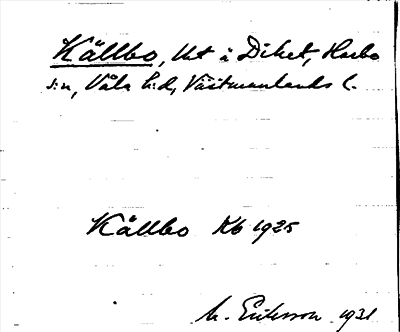 Källbo, Uht å Diket, Harbo
s:n, Våla h:d, Västmanlands l.
Källbo Kb 1925
M. Eriksson 1931